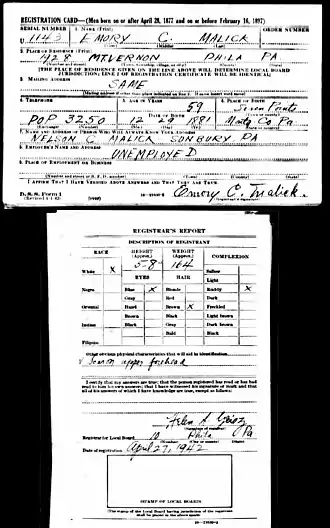 REGISTRATION CARD—(Men born on or after April 28, 1877 and on or before February 16, 1897)
SERIAL NUMBER 1. NAME (Print) ORDER NUMBER
U 1143 EMORY C. MALICK
(First) (Middle) (Last)
2. PLACE OF RESIDENCE (Print)
428 MT. VERNON PHILA PA
[THE PLACE OF RESIDENCE GIVEN ON THE LINE ABOVE WILL DETERMINE LOCAL BOARD
JURISDICTION; LINE 2 OF REGISTRATION CERTIFICATE WILL BE IDENTICAL]
3. MAILING ADDRESS
SAME
4. TELEPHONE 5. AGE IN YEARS 6. PLACE OF BIRTH
59
DATE OF BIRTH
POP 3250 12 29 1881 Pa
7. NAME AND ADDRESS OF PERSON WHO WILL ALWAYS KNOW YOUR ADDRESS
NELSON C MALICK SUNBURY PA
8. EMPLOYER'S NAME AND ADDRESS
UNEMPLOYED
9. PLACE OF EMPLOYMENT OR BUSINESS
I AFFIRM THAT I HAVE VERIFIED ABOVE ANSWERS AND THAT THEY ARE TRUE.
D. S. S. Form 1
Emory C. Malick
REGISTRAR'S REPORT
DESCRIPTION OF REGISTRANT
RACE HEIGHT (Approx.) WEIGHT (Approx.) COMPLEXION
5.8 164
White X Sallow
EYES HAIR Light
Negro Blue X Blonde Ruddy X
Gray Red Dark
Oriental Hazel Brown X Freckled
Brown Black Light brown
Indian Black Gray Dark brown
Bald Black
Filipino
Other obvious physical characteristics that will aid in identification
upper forehead
I certify that my answers are true; that the person registered has read or has had
read to him his own answers; that I have witnessed his signature or mark and that
all of his answers of which I have knowledge are true, except as follows:
Registrar for Local Board 10 Phila Pa
Date of registration April 27, 1942
STAMP OF LOCAL BOARD
(The stamp of the Local Board having jurisdiction of the registrant
shall be placed in the above space)